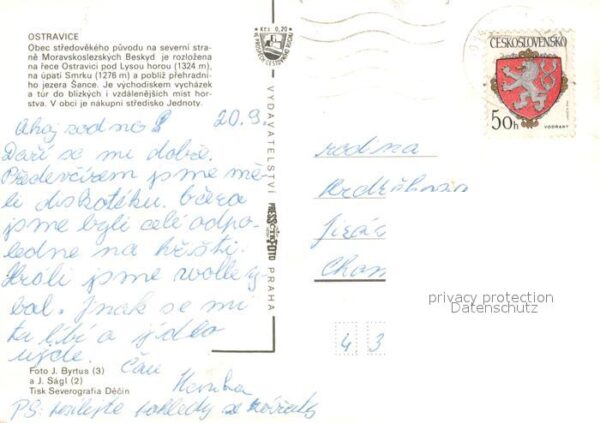 OSTRAVICE
Obec středověkého původu na severní stra-
ně Moravskoslezských Beskyd je rozložena
na řece Ostravici pod Lysou horou (1324 m),
na úpatí Smrku (1276 m) a poblíž přehradní-
ho jezera Šance. Je východiskem vycházek
a túr do blízkých i vzdálenějších míst hor-
stva. V obci je nákupní středisko Jednoty.
Ahoj rodino 20.9.
Daří se mi dobře.
Předevčírem jsme mě-
li diskotéku. Včera
jsme byli celé odpo-
ledne na hřišti.
Hráli jsme volley-
bal. Jinak se mi
tu líbí a jídlo
ujde.
Čau
Hanka
PS: na
Foto J. Byrtus (3)
a J. Ságl (2)
Tisk Severografia Děčín
Kčs 0,20
VYDAVATELSTVÍ PRESSFOTO PRAHA
ČESKOSLOVENSKO
50h
VODŇANY
rodina
Jirás
Chom
4 3
privacy protection
Datenschutz